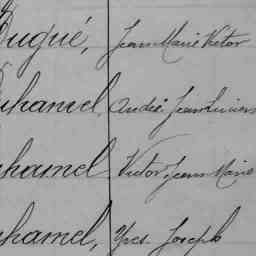 Dugué, Jean Marie Victor
Duhamel, André Jean Lucien
Duhamel Victor Jean Marie
Duhamel, Yves Joseph